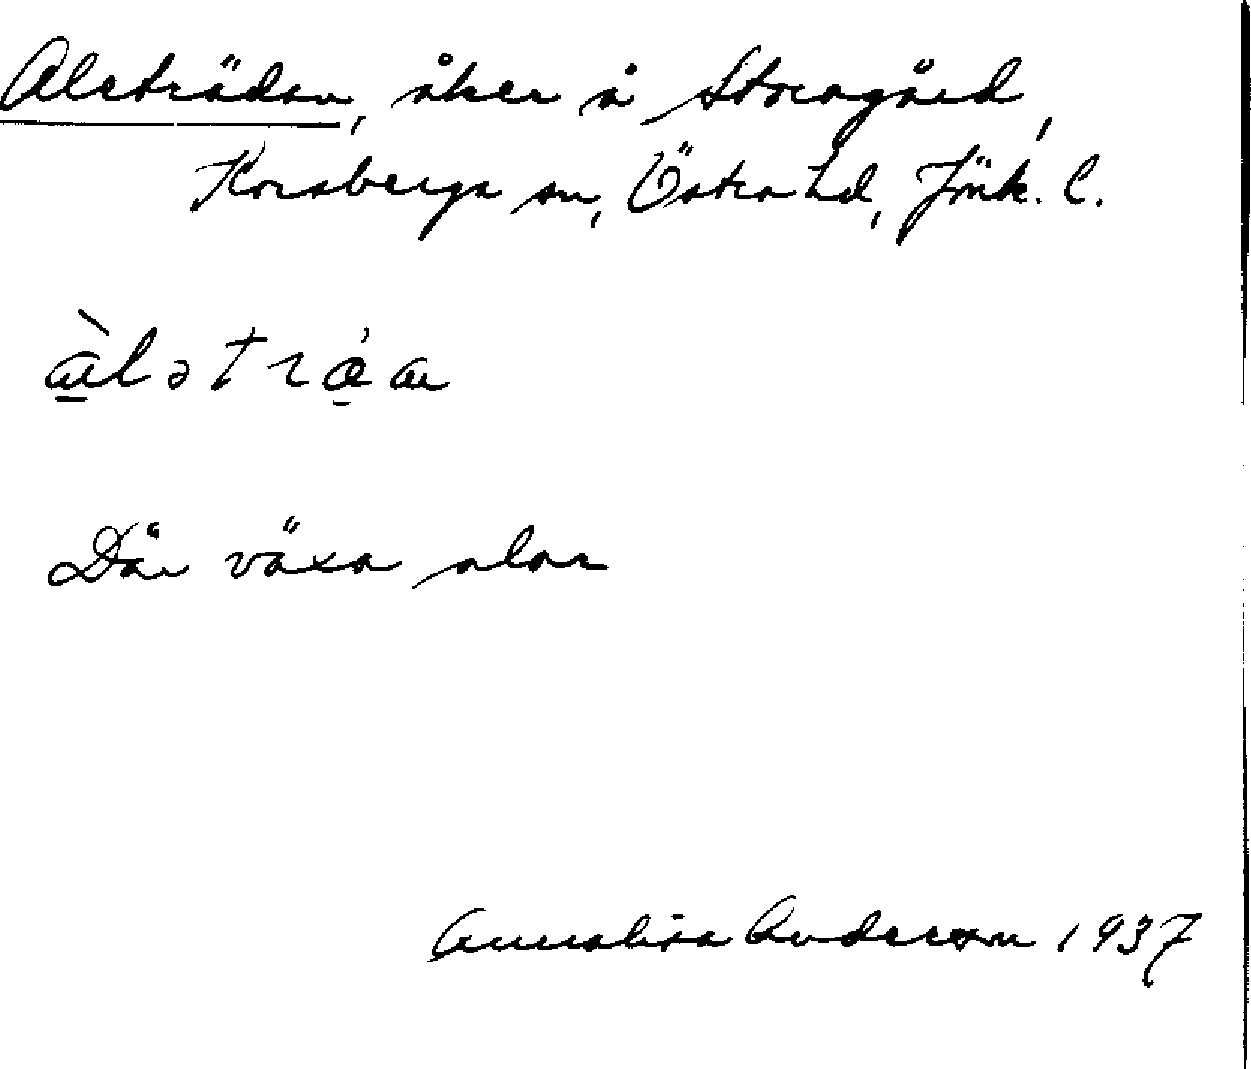 Aleträdan, åker å Storagård,
Korsberga sn, Östra hd, Jönk. l.
àlətrǽa
Där växa alar
Annalisa Anderson 1937